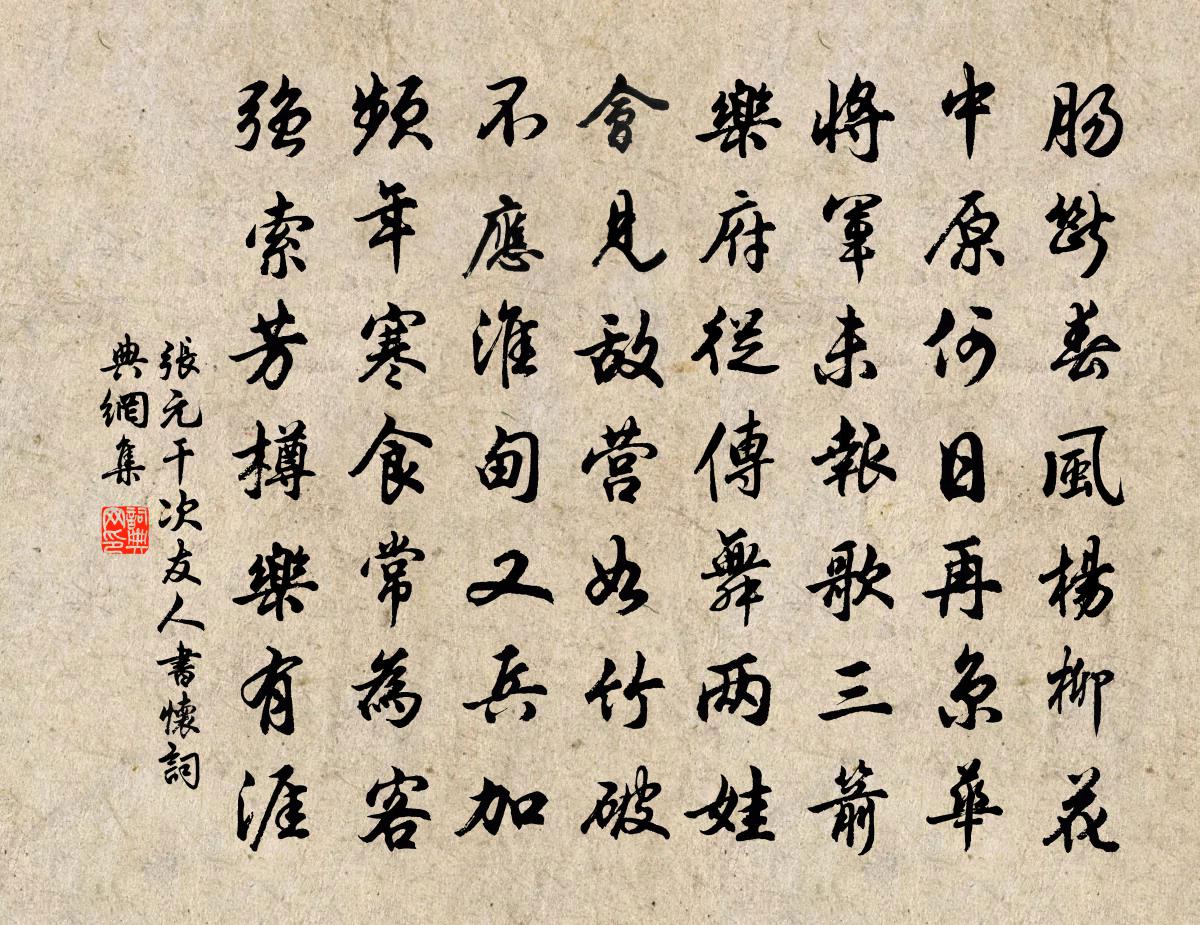 肠斷春風楊柳花
中原何日再京華
將軍未報歌三箭
樂府從傳舞两娃
會見敌营如竹破
不應淮甸又兵加
頻年寒食常為客
強索芳樽樂有涯
張元干次友人書懷詞
典網集
詞典
网印